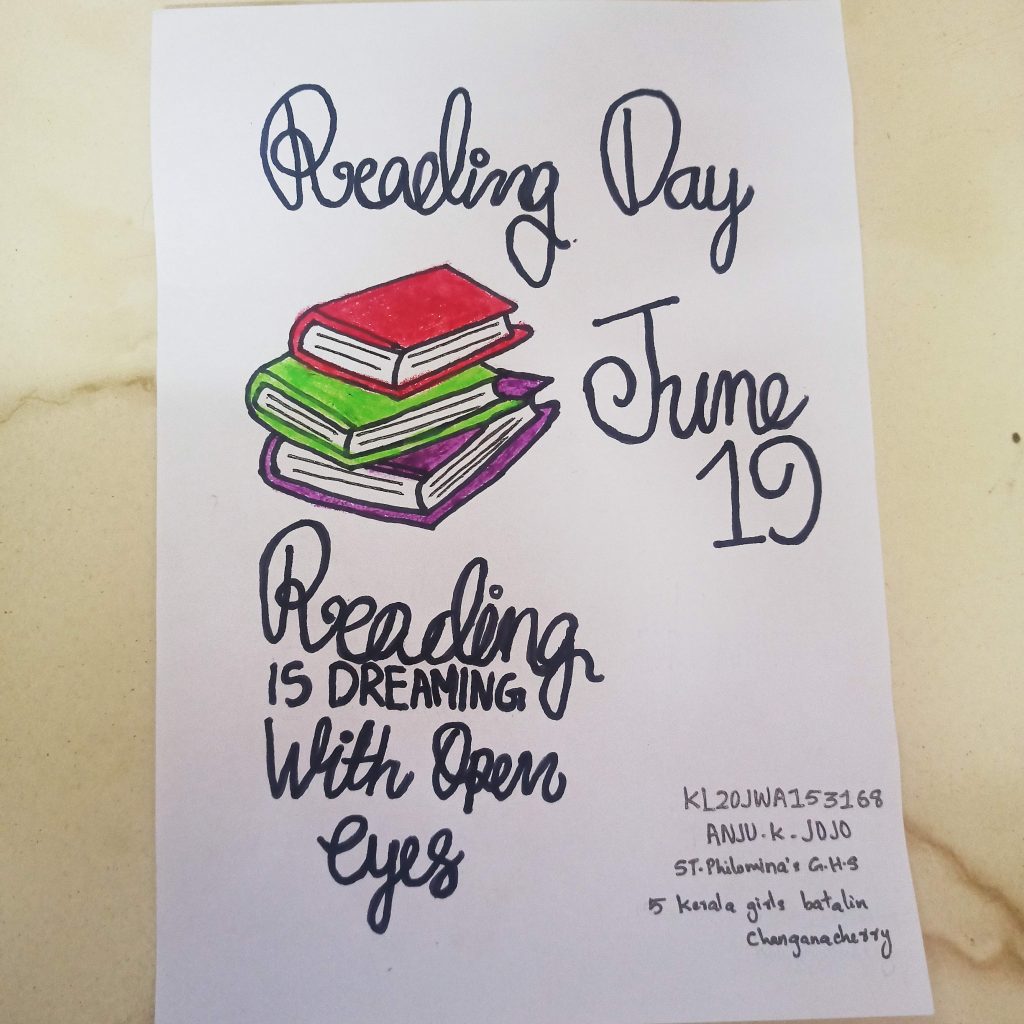 Reading Day
June
19
Reading
IS DREAMING
With Open
eyes
KL20JWA153168
ANJU.K.JOJO
ST.Philomina's G.H.S
5 Kerala girls batalin
Changanacherry